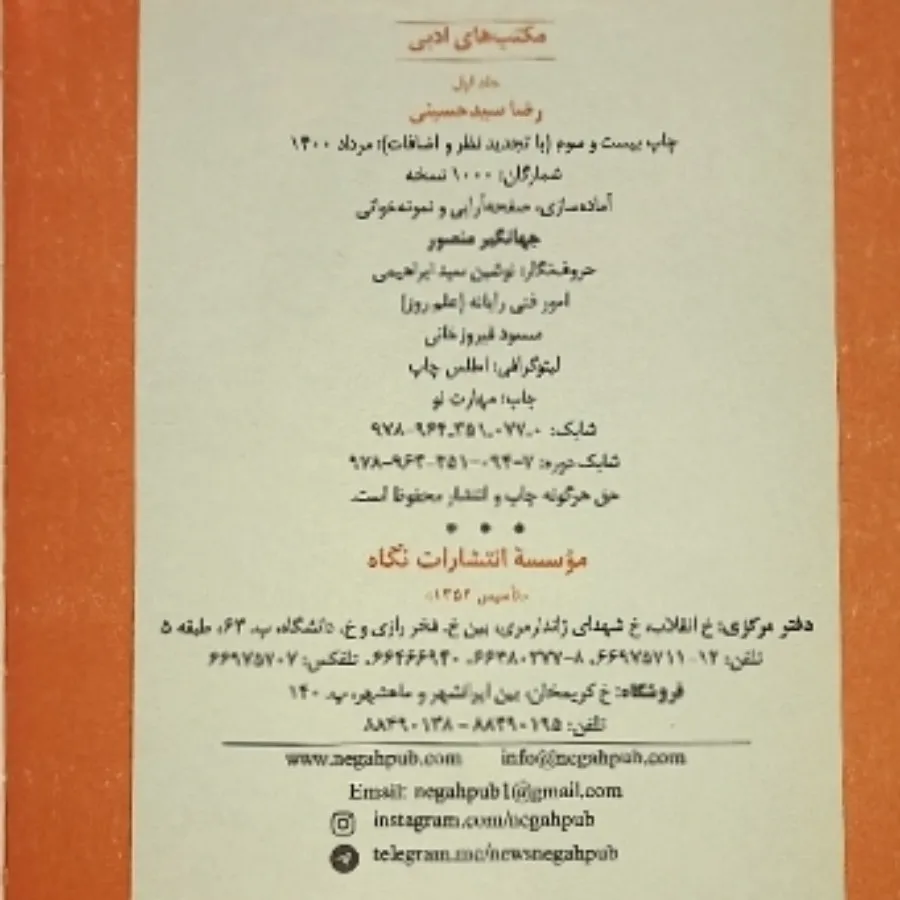 مکتب‌های ادبی
جلد اول
رضا سیدحسینی
چاپ بیست و سوم (با تجدید نظر و اضافات): مرداد ۱۴۰۰
شمارگان: ۱۰۰۰ نسخه
آماده‌سازی، صفحه‌آرایی و نمونه‌خوانی
جهانگیر منصور
حروفنگار: نوشین سید ابراهیمی
امور فنی رایانه (علم روز)
مسعود فیروزخانی
لیتوگرافی: اطلس چاپ
چاپ: مهارت نو
شابک: ۰-۰۷۷-۳۵۱-۹۶۴-۹۷۸
شابک دوره: ۷-۰۹۴-۳۵۱-۹۶۴-۹۷۸
حق هرگونه چاپ و انتشار محفوظ است.
• • •
مؤسسهٔ انتشارات نگاه
«تأسیس ۱۳۵۲»
دفتر مرکزی: خ انقلاب، خ شهدای ژاندارمری، بین خ. فخر رازی و خ. دانشگاه، پ. ۶۳، طبقه ۵
تلفن: ۱۲-۶۶۹۷۵۷۱۱، ۸-۶۶۴۸۰۳۷۷، ۶۶۴۶۶۹۴۰، تلفکس: ۶۶۹۷۵۷۰۷
فروشگاه: خ کریمخان، بین ایرانشهر و ماهشهر، پ. ۱۴۰
تلفن: ۸۸۴۹۰۱۹۵ – ۸۸۴۹۰۱۳۸
www.negahpub.com info@negahpub.com
Email: negahpub1@gmail.com
instagram.com/negahpub
telegram.me/newsnegahpub